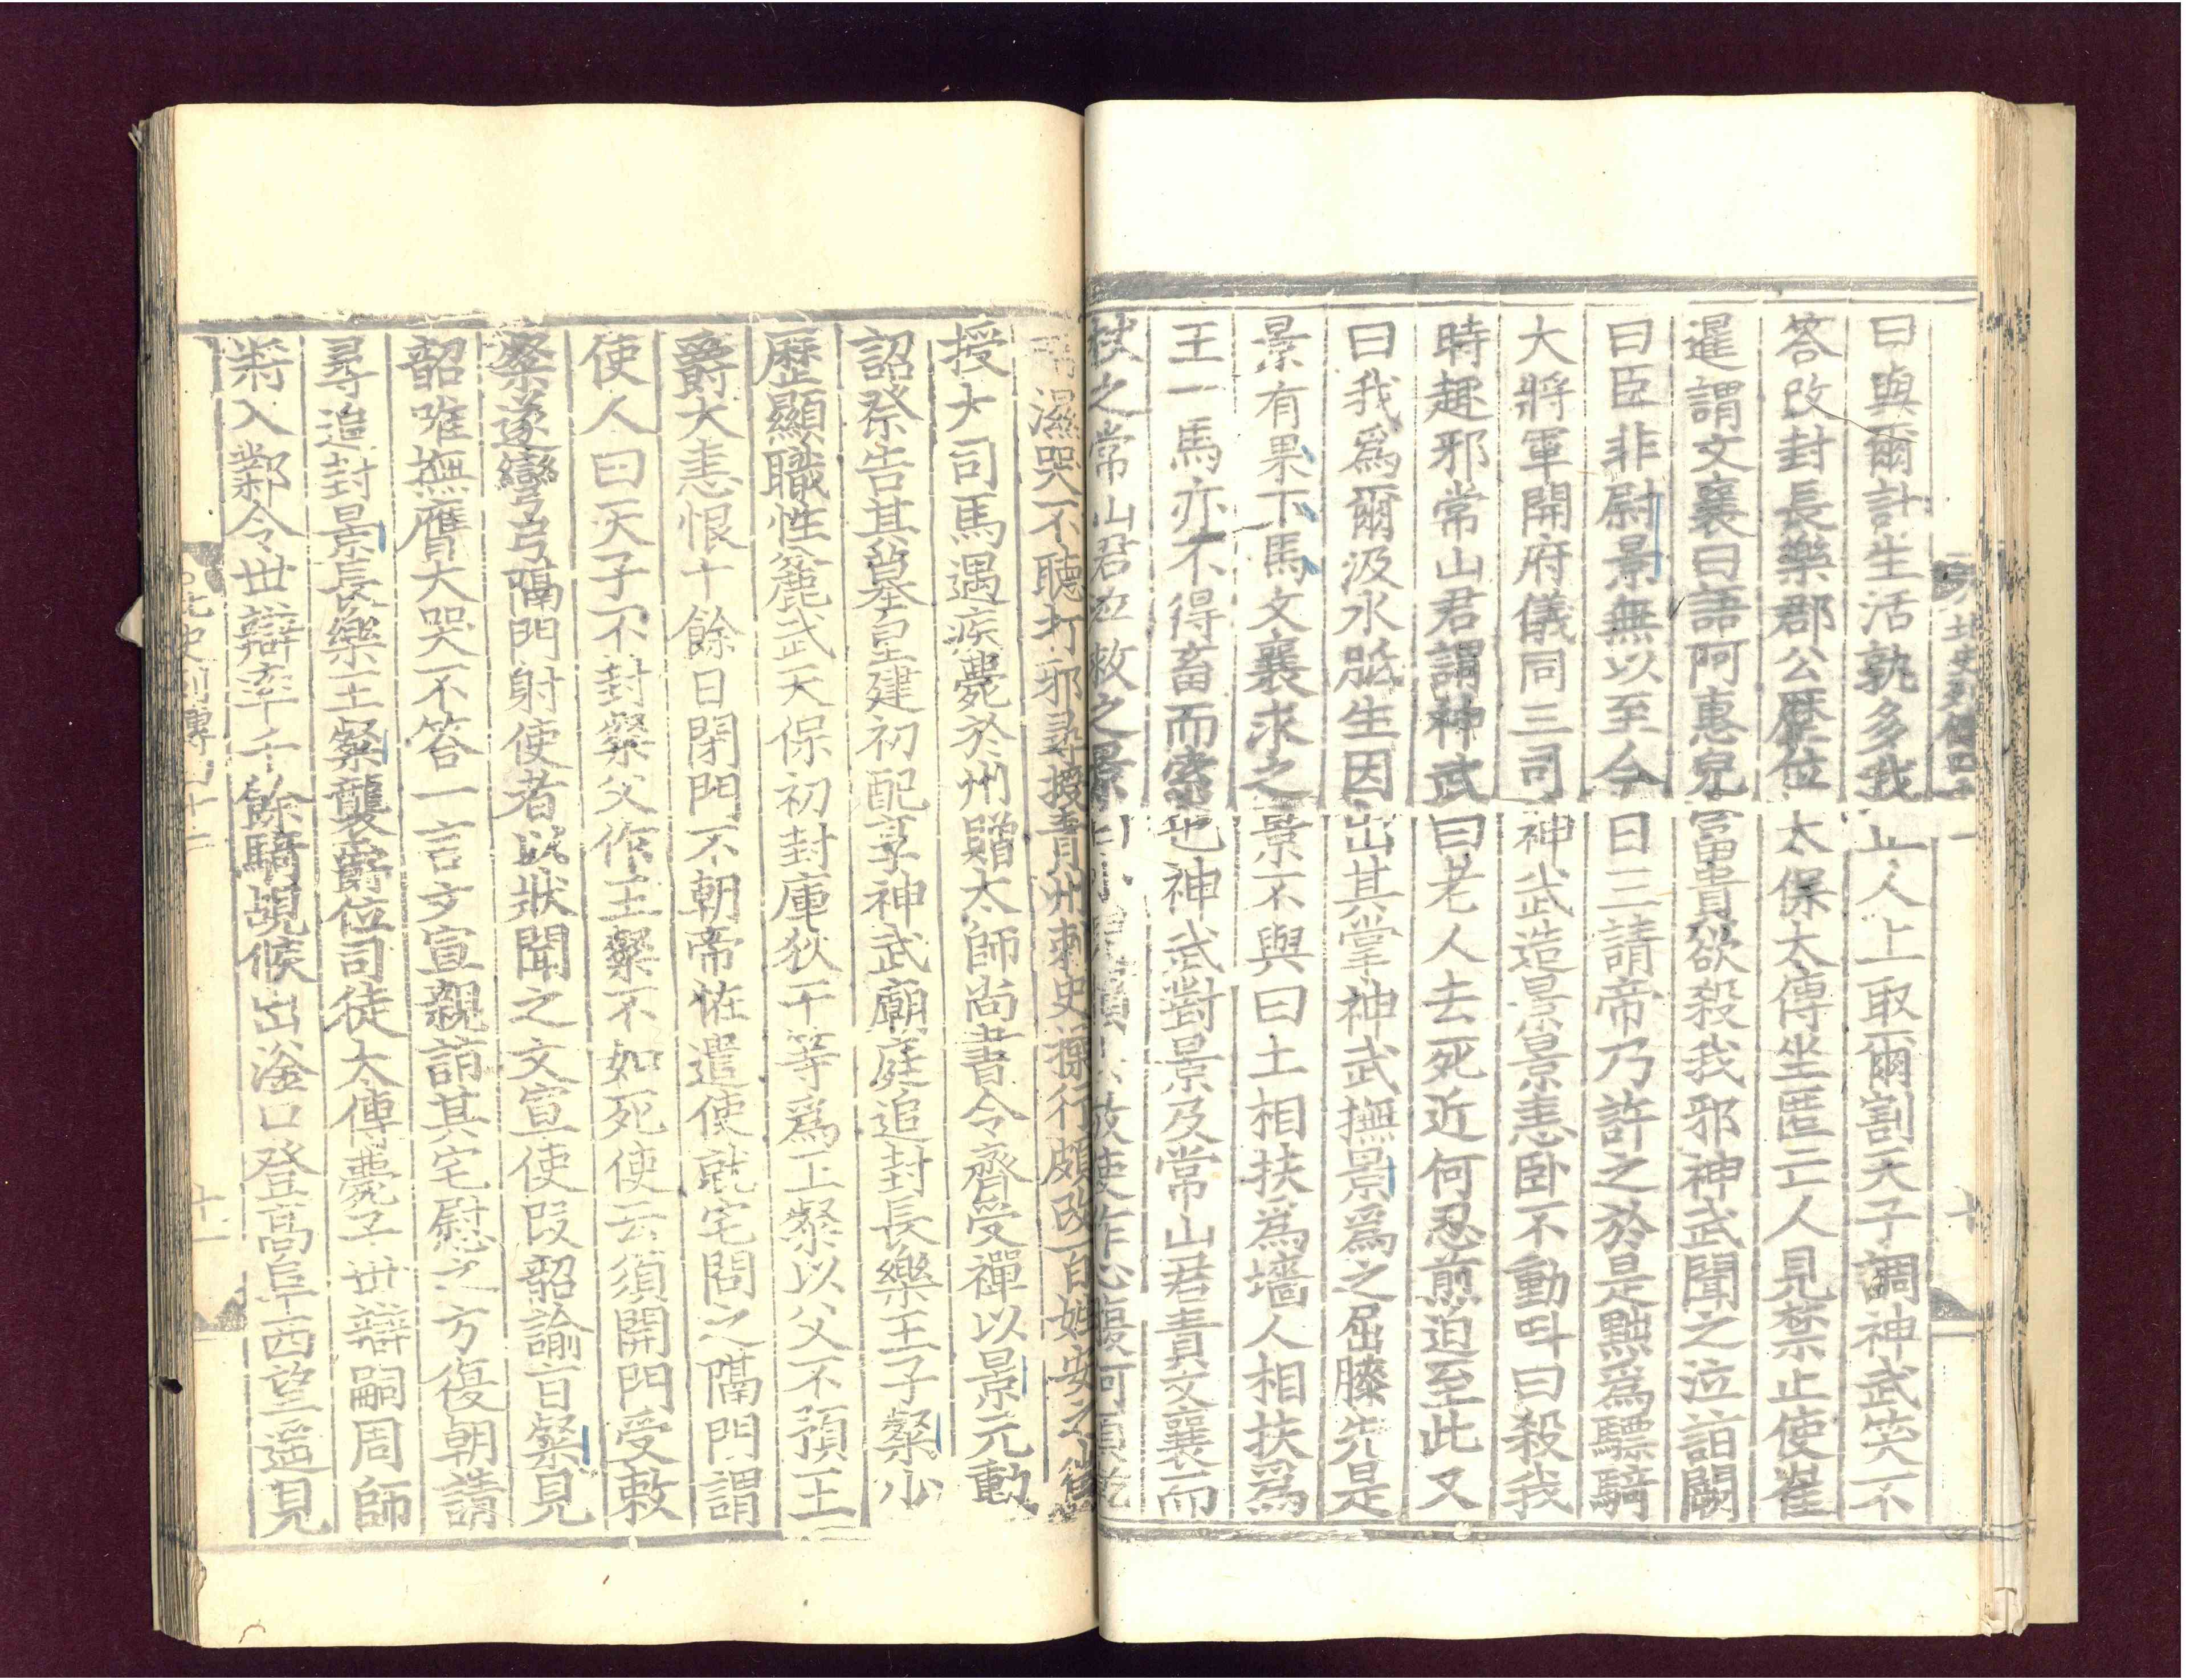 北史列傳四十二 十
曰與爾計生活孰多我止人上取爾割天子調神武笑不
答改封長樂郡公歷位太保太傅坐匿亡人見禁止使崔
暹謂文襄曰語阿惠兒富貴欲殺我邪神武聞之泣詣闕
曰臣非尉景無以至今日三請帝乃許之於是黜爲驃騎
大將軍開府儀同三司神武造景景恚卧不動叫曰殺我
時趣邪常山君謂神武曰老人去死近何忍煎迫至此又
曰我爲爾汲水胝生因出其掌神武撫景爲之屈膝先是
景有果下馬文襄求之景不與曰土相扶爲墻人相扶爲
王一馬亦不得畜而索也神武對景及常山君責文襄而
杖之常山君泣救之景曰小兒慣去放使作心腹何須乾
啼濕哭不聽打邪尋授青州刺史操行頗改百姓安之徵
授大司馬遇疾薨於州贈太師尚書令齊受禪以景元勳
詔祭告其墓皇建初配享神武廟庭追封長樂王子粲少
歷顯職性麁武天保初封庫狄干等爲王粲以父不預王
爵大恚恨十餘日閉門不朝帝怪遣使就宅問之隔門謂
使人曰天子不封粲父作王粲不如死使云須開門受敕
粲遂彎弓隔門射使者以狀聞之文宣使段韶諭旨粲見
韶唯撫膺大哭不答一言文宣親詣其宅慰之方復朝請
尋追封景長樂王粲襲爵位司徒太傅薨子世辯嗣周師
將入鄴令世辯率千餘騎覘候出滏口登高阜西望遥見
北史列傳四十二 十一